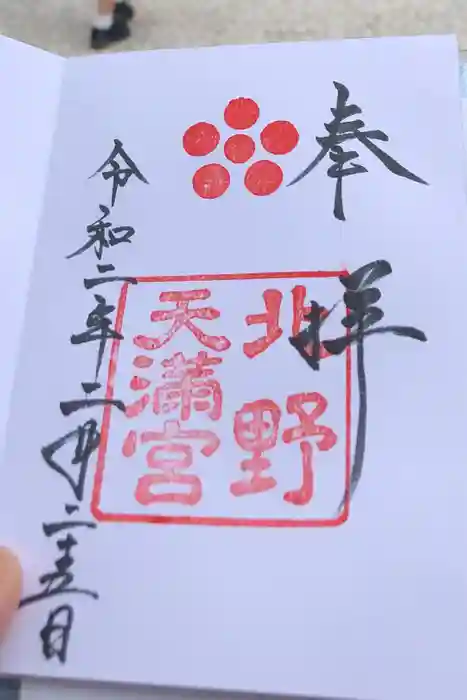 奉拝
北野
天満宮
令和二年二月二十五日